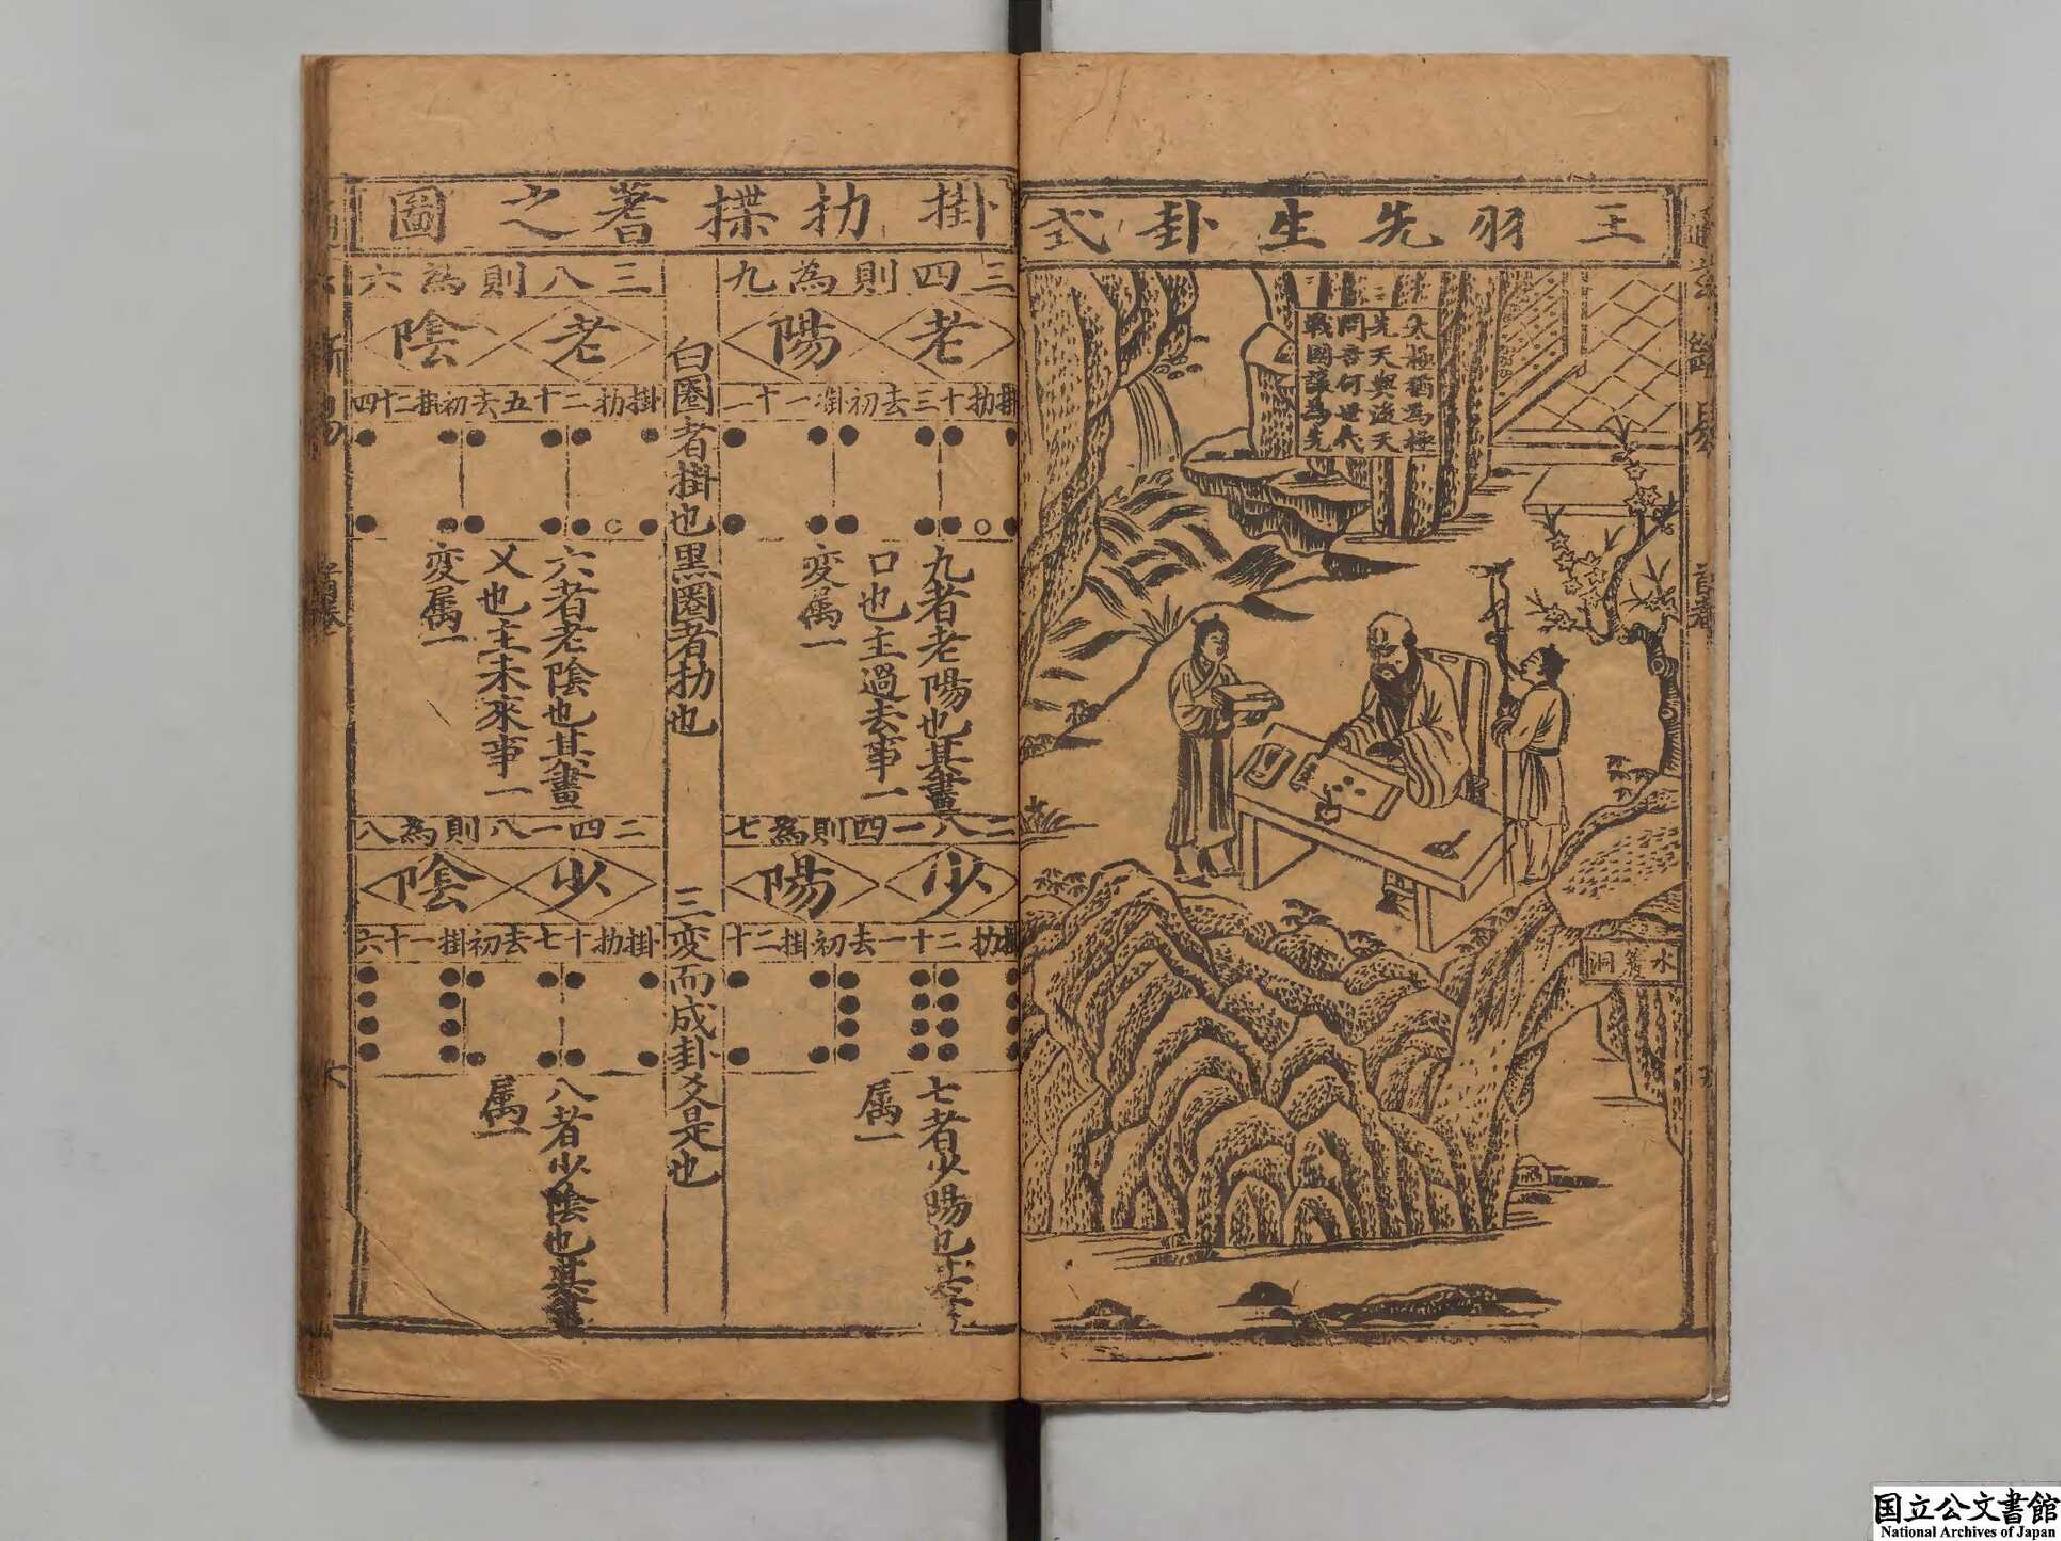 王羽先生卦式
太極猶爲極
先天與後天
問吾何世代
戰國讓爲先
水簾洞
首卷
掛扐揲蓍之圖
三四則為九
老陽
掛扐十三去初掛一十二
九者老陽也其畫
口也主過去事一
変属一
二八一四則為七
少陽
掛扐二十一去初掛二十
七者少陽也
属一
白圈者掛也黑圈者扐也
三変而成卦爻是也
三八則為六
老陰
掛扐二十五去初掛二十四
六者老陰也其畫
乂也主未來事一
変属一
二四一八則為八
少陰
掛扐十七去初掛一十六
八者少陰也其
属一
国立公文書館
National Archives of Japan